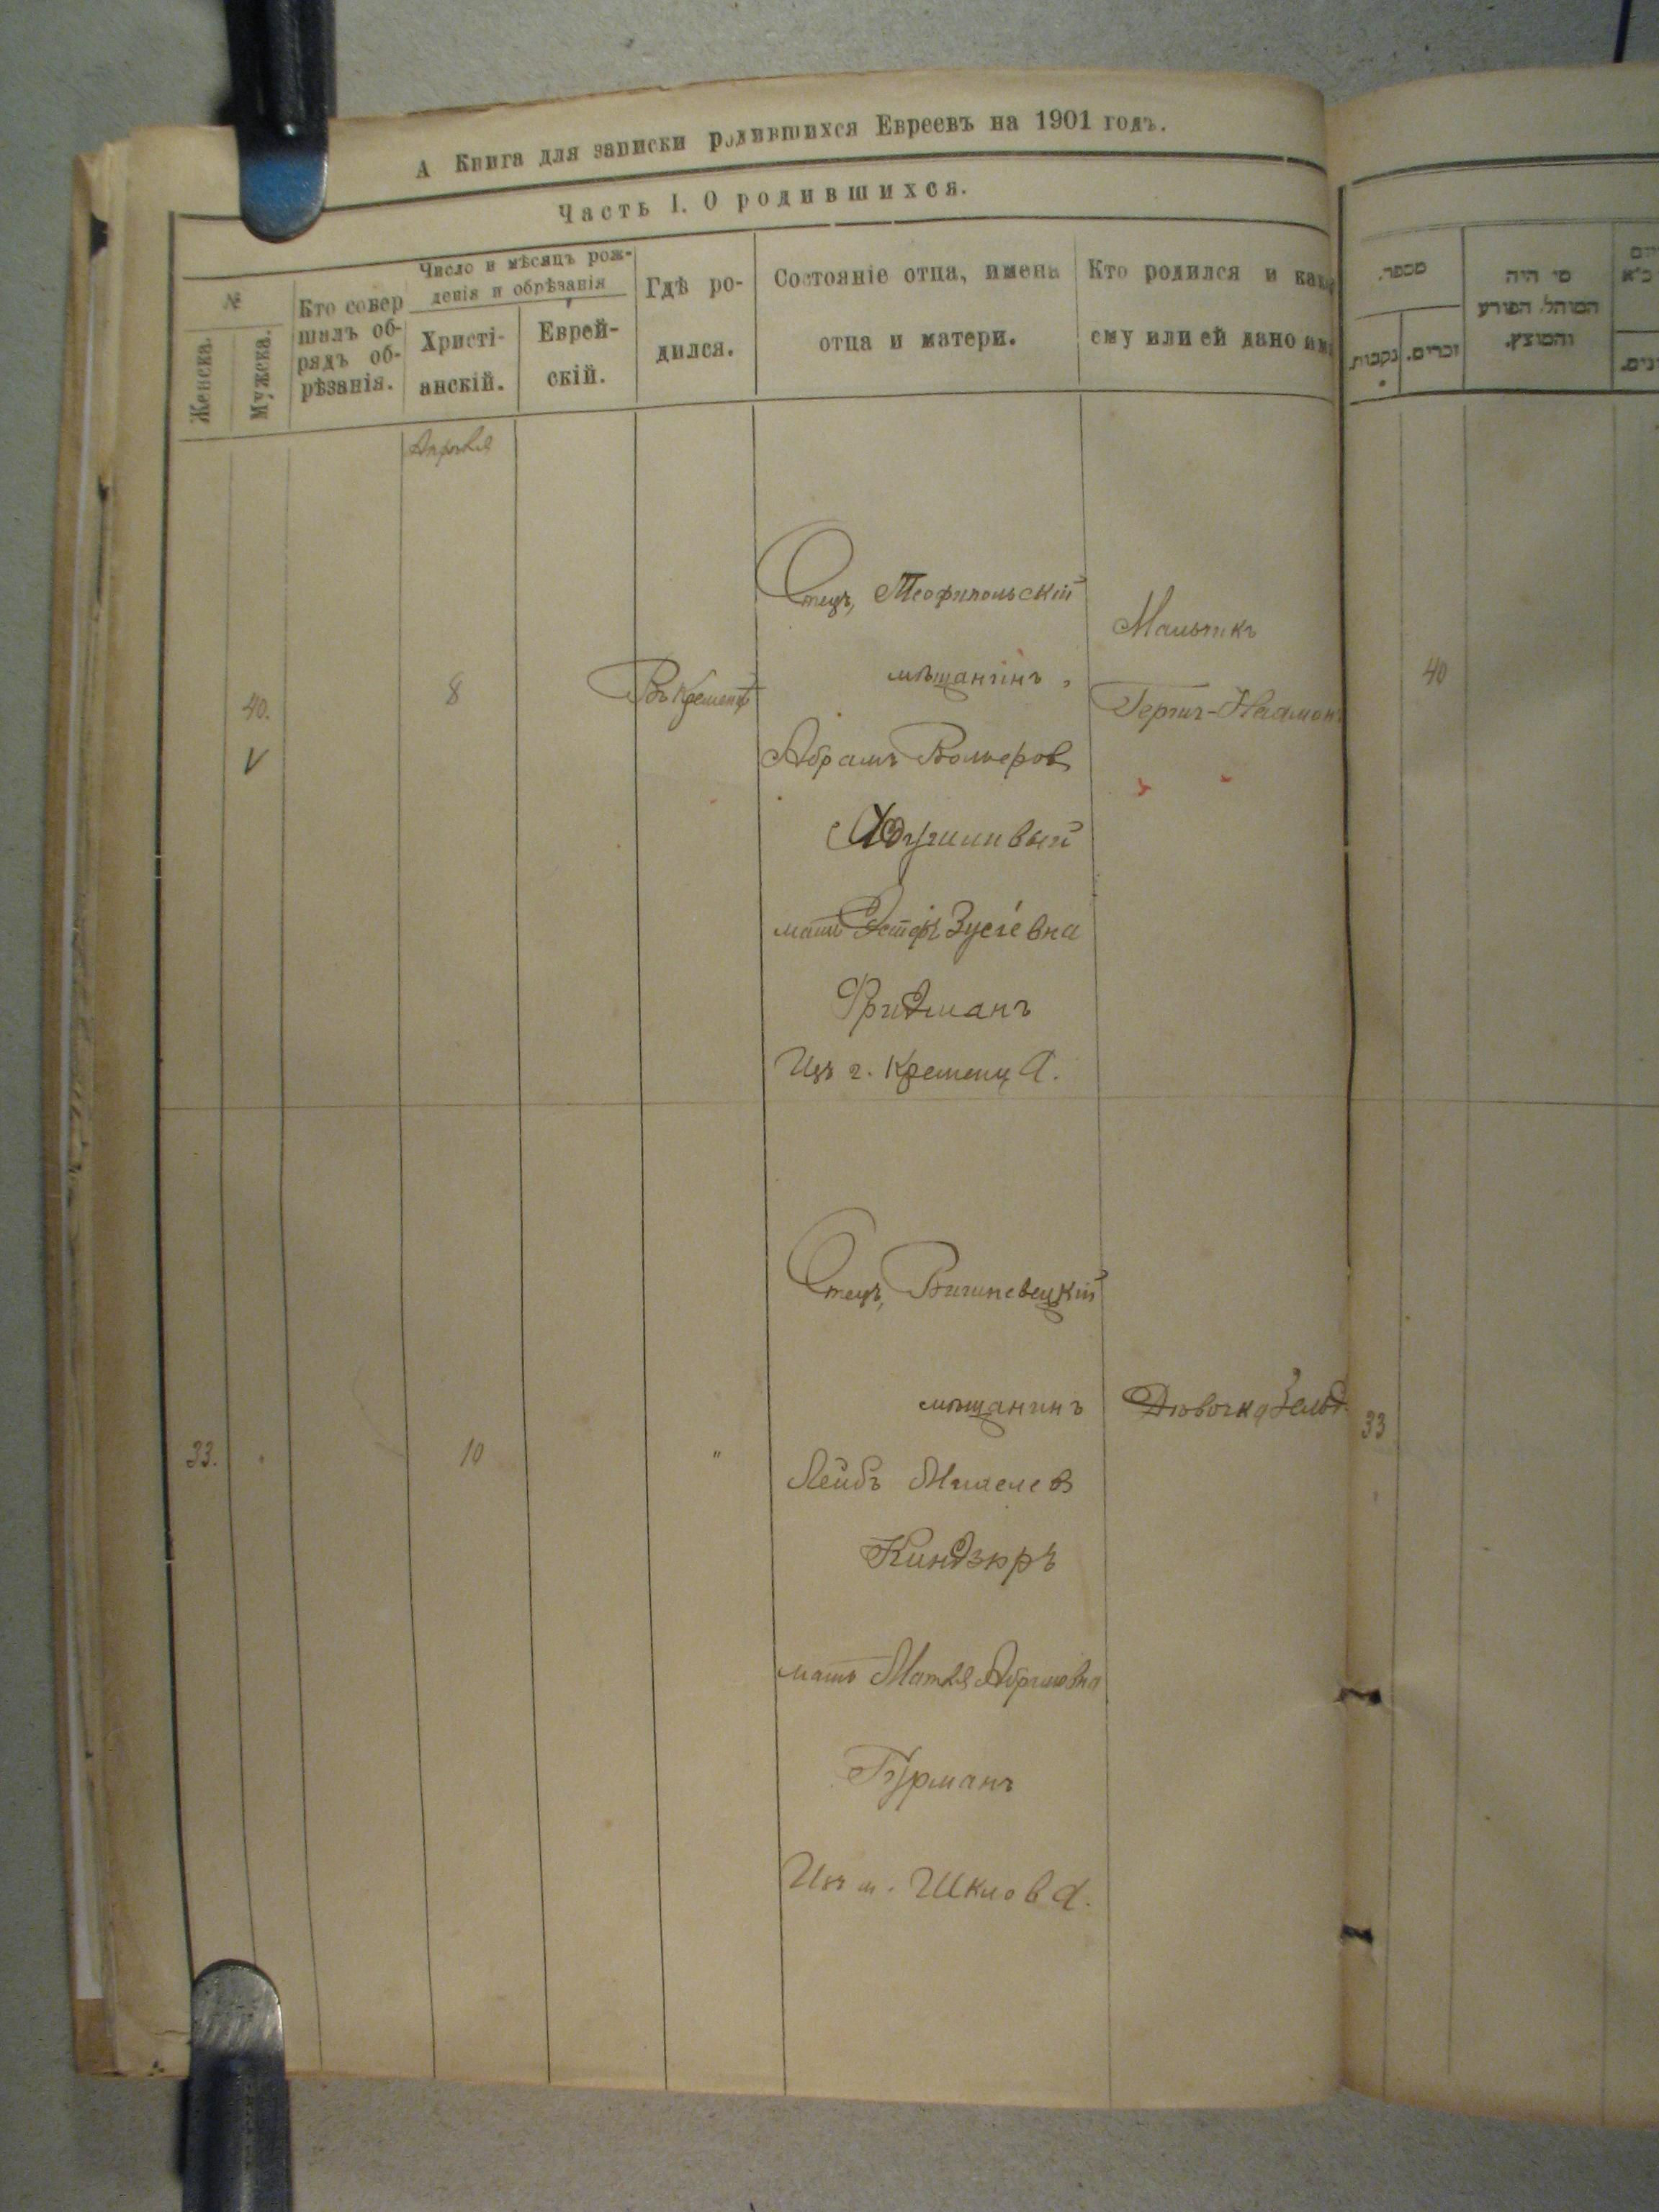 А Книга для записки родившихся Евреевъ на 1901 годъ.
Часть I. О родившихся.
№
Женска.
Мужска.
Кто совер
шалъ об-
рядъ об-
рѣзанія.
Число и мѣсяцъ рож-
денія и обрѣзанія
Христі-
анскій.
Еврей-
скій.
Гдѣ ро-
дился.
Состояніе отца, имена
отца и матери.
Кто родился и како
ему или ей дано им
Апрѣля
40.
8
Въ Кременцѣ
Отецъ, Теофипольскій
мѣщанинъ,
Абрамъ Волькеров
мать Зусевна
Фридманъ
Изъ г. Кременца.
Мальчикъ
Гершъ-
33.
10
"
Отецъ, Вишневецкій
мѣщанинъ
Лейбъ
Киндзюръ
мать Матля Абрамовна
Гурманъ
Изъ м. Шклова.
Дѣвочка Зельд
מספר.
נקבות.
זכרים.
מי היה
המוהל, הפורע
והמוצץ.
40
33